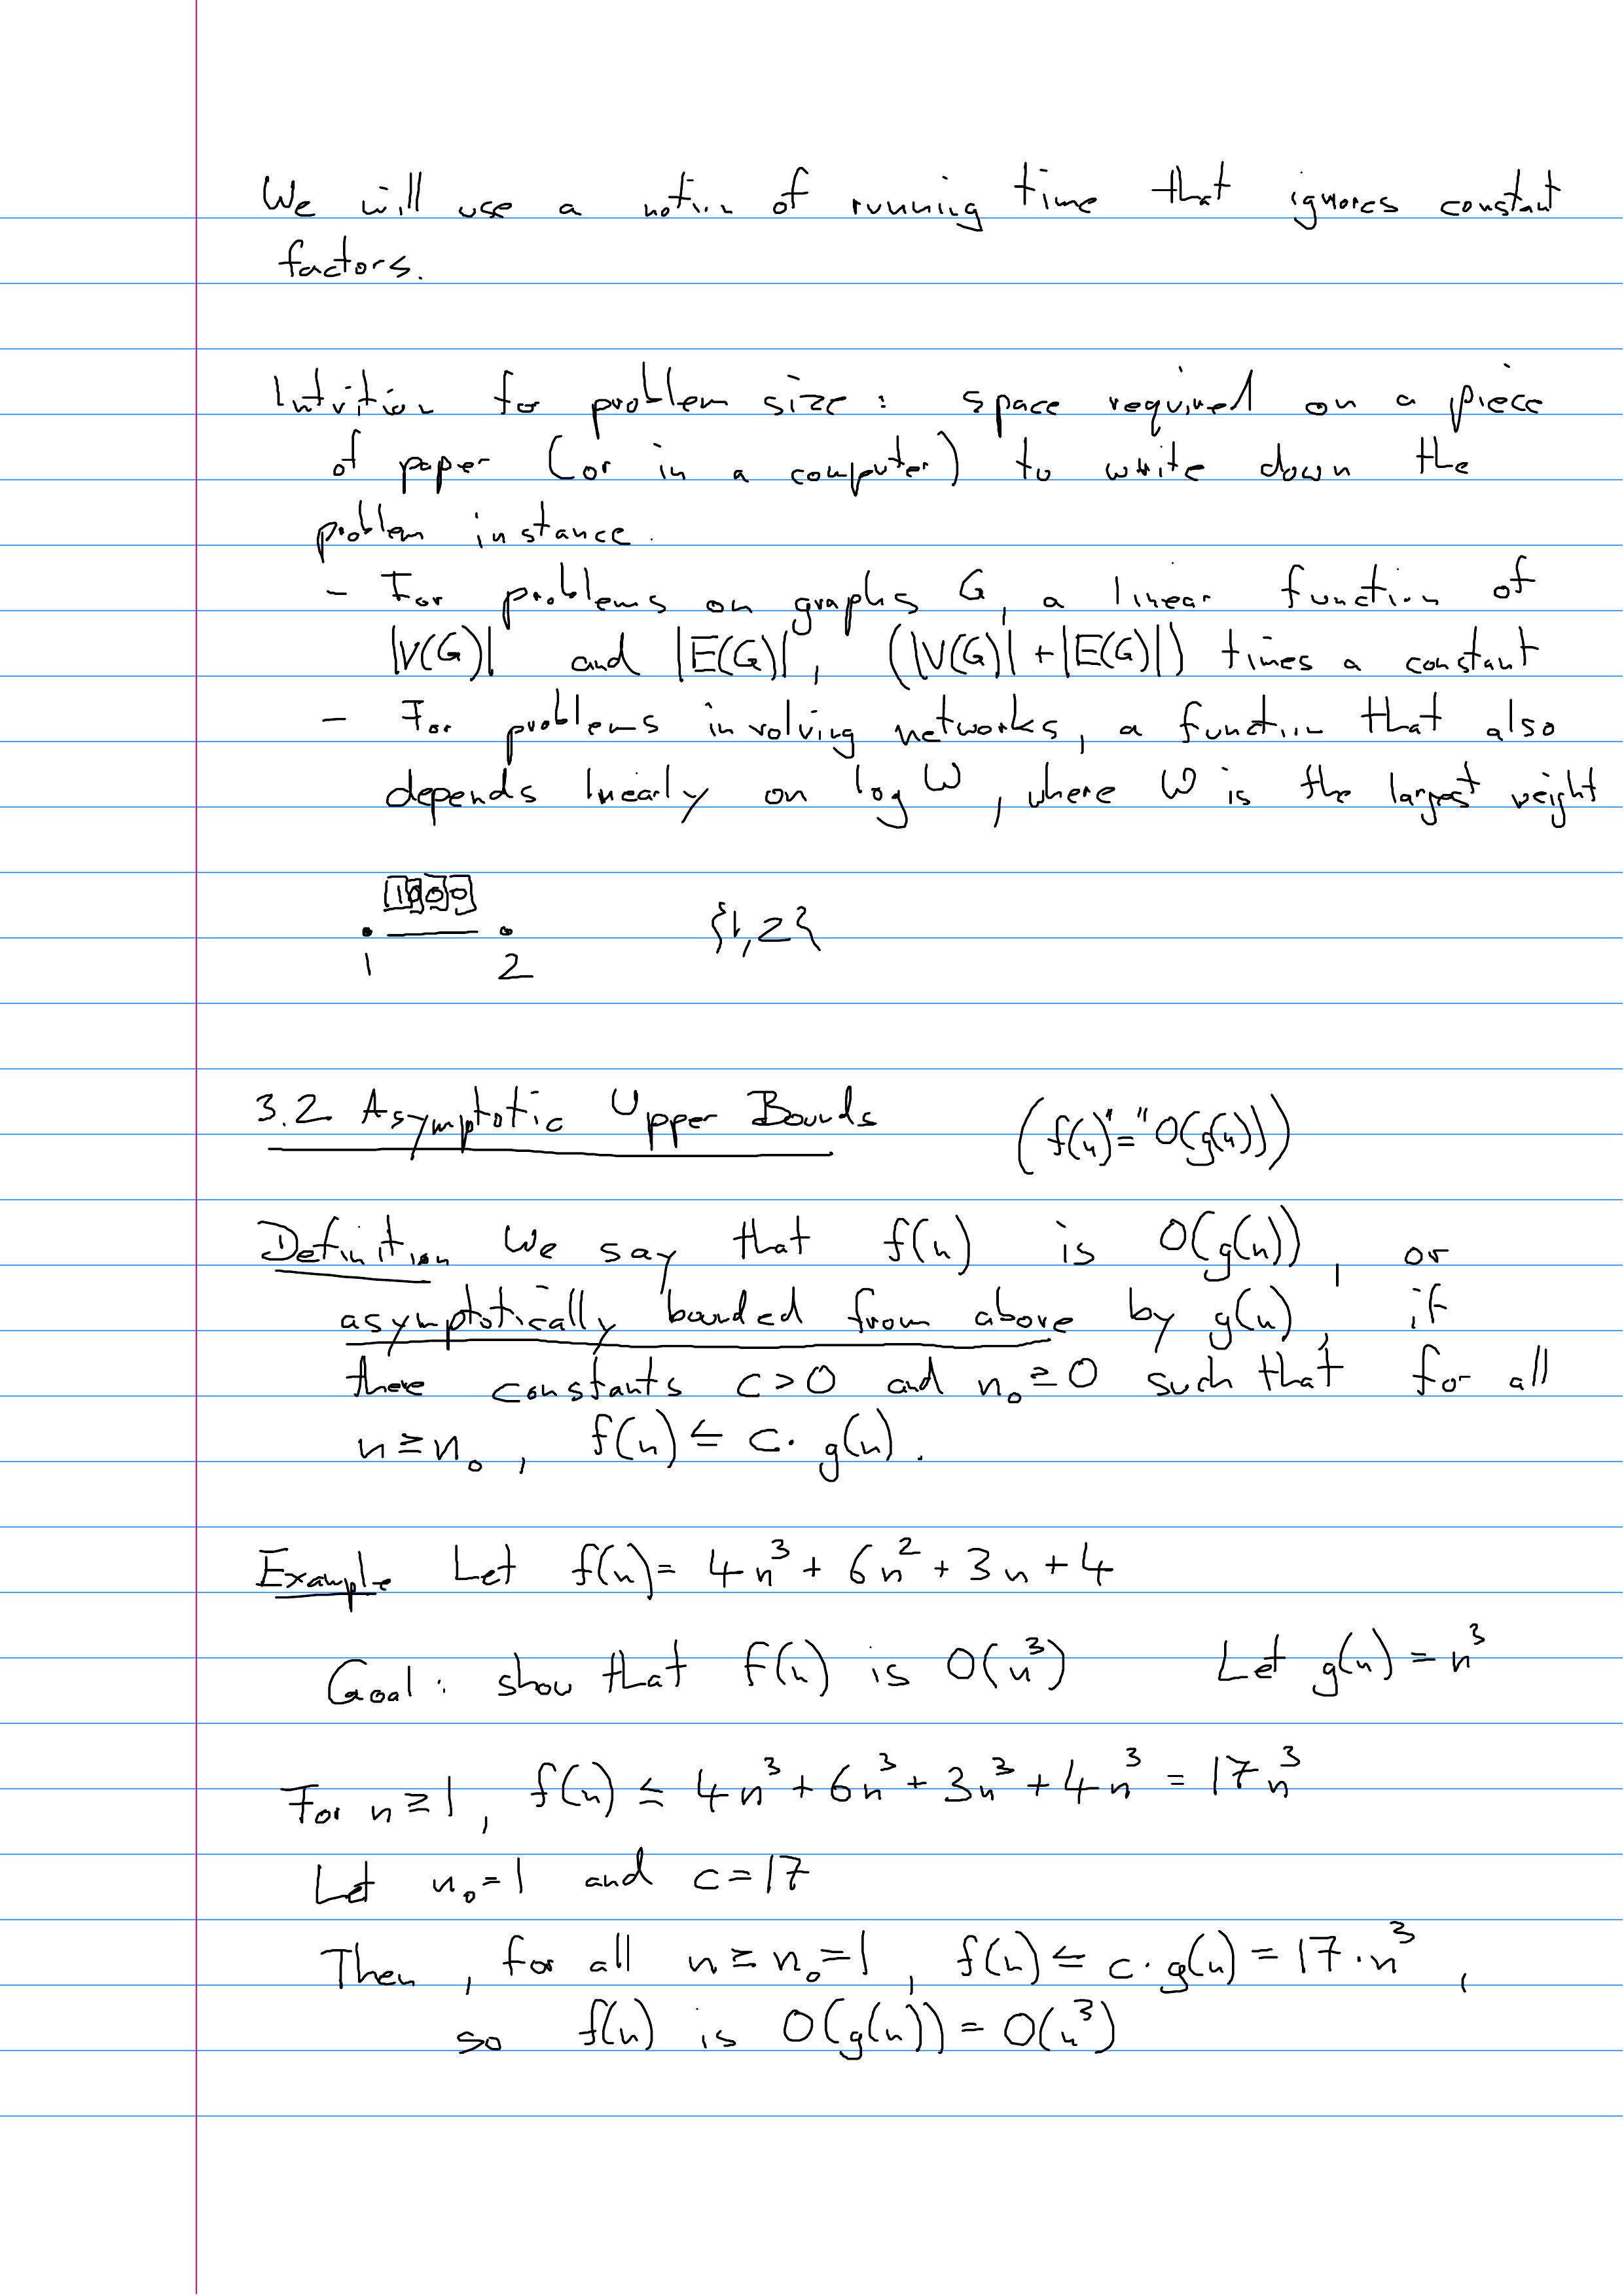 We will use a notion of running time that ignores constant
factors.
Intuition for problem size : space required on a piece
of paper (or in a computer) to write down the
problem instance.
- For problems on graphs G, a linear function of
|V(G)| and |E(G)|, (|V(G)|+|E(G)|) times a constant
- For problems involving networks, a function that also
depends linearly on log W, where W is the largest weight
1000
1 2 {1,2}
3.2 Asymptotic Upper Bounds (f(n)"="O(g(n)))
Definition We say that f(n) is O(g(n)), or
asymptotically bounded from above by g(n), if
there constants c>0 and n₀≥0 such that for all
n≥n₀, f(n) ≤ c· g(n).
Example Let f(n)= 4n³ + 6n² + 3n + 4
Goal: show that f(n) is O(n³) Let g(n) = n³
For n≥1, f(n) ≤ 4n³ + 6n³ + 3n³ + 4n³ = 17n³
Let n₀=1 and c=17
Then, for all n≥n₀=1, f(n) ≤ c·g(n) = 17·n³,
so f(n) is O(g(n)) = O(n³)